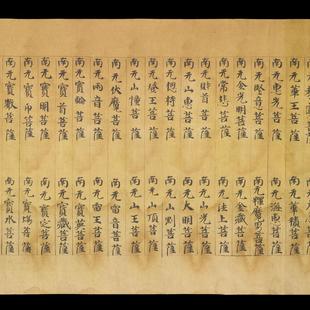 南无華王菩薩 南无 菩薩
南无惠光菩薩 南无海惠菩薩
南无堅意菩薩 南无釋魔男菩薩
南无金光明菩薩 南无金藏菩薩
南无常悲菩薩 南无法上菩薩
南无財首菩薩 南无山光菩薩
南无山惠菩薩 南无大明菩薩
南无惣持菩薩 南无山菩薩
南无王菩薩 南无山頂菩薩
南无山幢菩薩 南无山王菩薩
南无伏魔菩薩 南无雷音菩薩
南无雨音菩薩 南无雷王菩薩
南无寶輪菩薩 南无寶英菩薩
南无寶首菩薩 南无寶藏菩薩
南无寶明菩薩 南无寶定菩薩
南无寶印菩薩 南无寶場菩薩
南无寶散菩薩 南无寶水菩薩